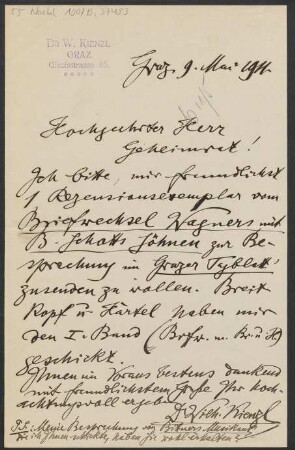 Dr W. KIENZL
GRAZ
Graz, 9. Mai 1911.
Hochgeehrter Herr
Geheimrat!
Ich bitte, mir freundlichst
1 Rezensionsexemplar vom
Briefwechsel Wagners mit
B. Schotts Söhnen zur Be-
sprechung im Grazer Tagblatt
zusenden zu wollen. Breit
Kopf u. Härtel haben mir
den I. Band (Brfw. m. Br. u. H)
geschickt.
Ihnen im Voraus bestens dankend
mit freundlichstem Gruße Ihr hoch-
achtungsvoll ergeb.
Dr Wilh. Kienzl
P.S. Meine Besprechung von Bittners Musikant
die ich Ihnen schickte, haben Sie wohl erhalten?